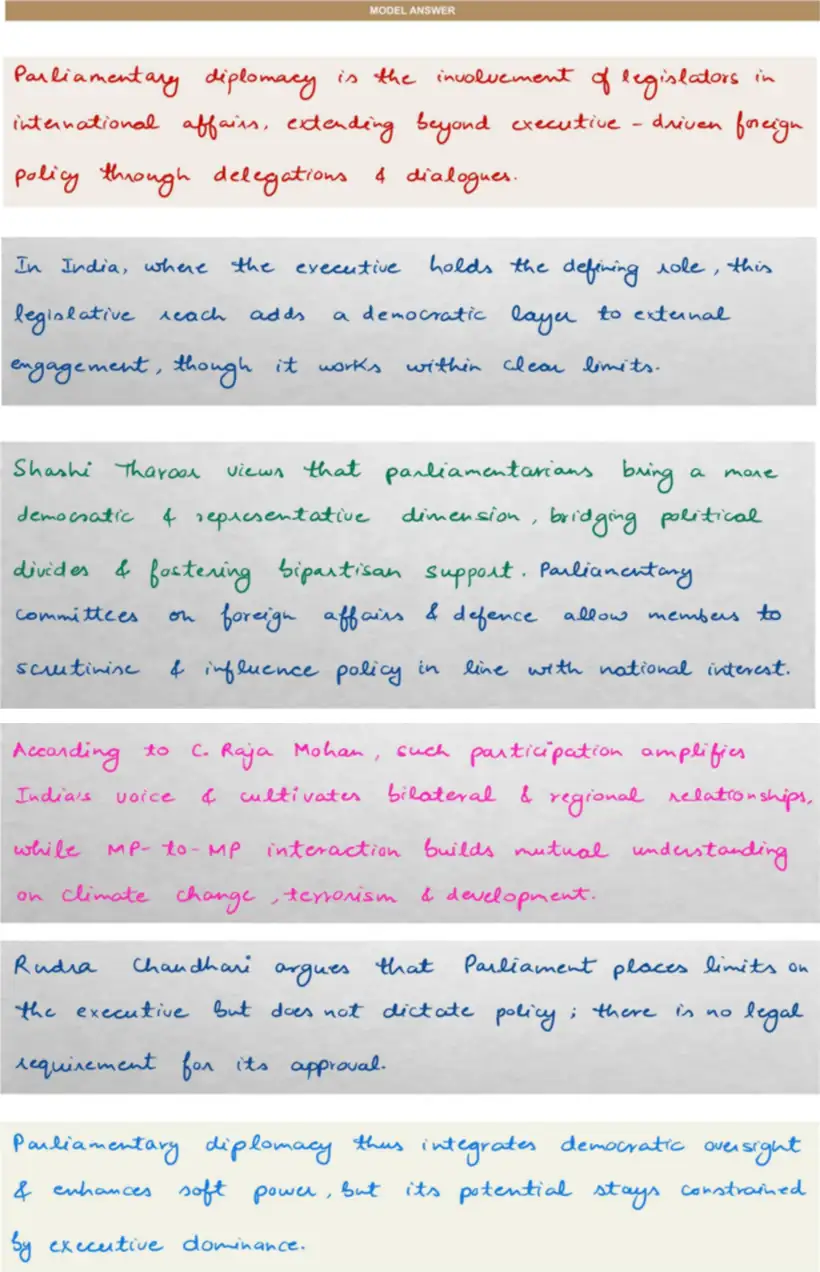 MODEL ANSWER
Parliamentary diplomacy is the involvement of legislators in
international affairs, extending beyond executive - driven foreign
policy through delegations & dialogues.
In India, where the executive holds the defining role, this
legislative reach adds a democratic layer to external
engagement, though it works within clear limits.
Shashi Tharoor views that parliamentarians bring a more
democratic & representative dimension, bridging political
divides & fostering bipartisan support. Parliamentary
committees on foreign affairs & defence allow members to
scrutinise & influence policy in line with national interest.
According to C. Raja Mohan, such participation amplifies
India's voice & cultivates bilateral & regional relationships,
while MP-to-MP interaction builds mutual understanding
on climate change, terrorism & development.
Rudra Chaudhari argues that Parliament places limits on
the executive but does not dictate policy; there is no legal
requirement for its approval.
Parliamentary diplomacy thus integrates democratic oversight
& enhances soft power, but its potential stays constrained
by executive dominance.